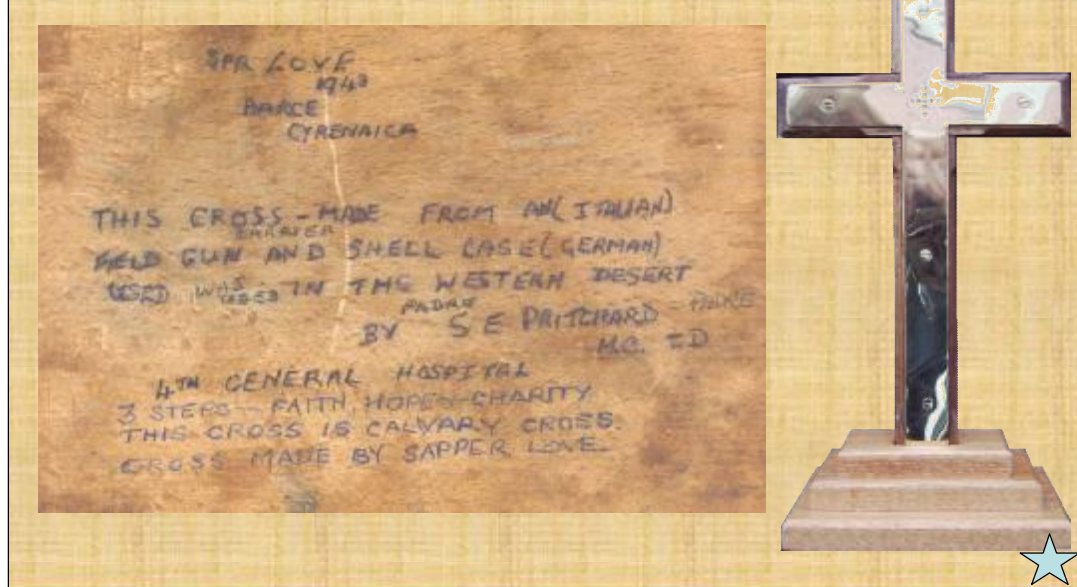 SPR LOVE
1943
BARCE
CYRENAICA
THIS CROSS - MADE FROM AN (ITALIAN)
CARRIER
FIELD GUN AND SHELL CASE (GERMAN)
USED WAS IN THE WESTERN DESERT
USED
PADRE
BY S E PRITCHARD - PADRE
M.C. T D
4TH GENERAL HOSPITAL
3 STEPS - FAITH, HOPE - CHARITY
THIS CROSS IS CALVARY CROSS.
CROSS MADE BY SAPPER LOVE